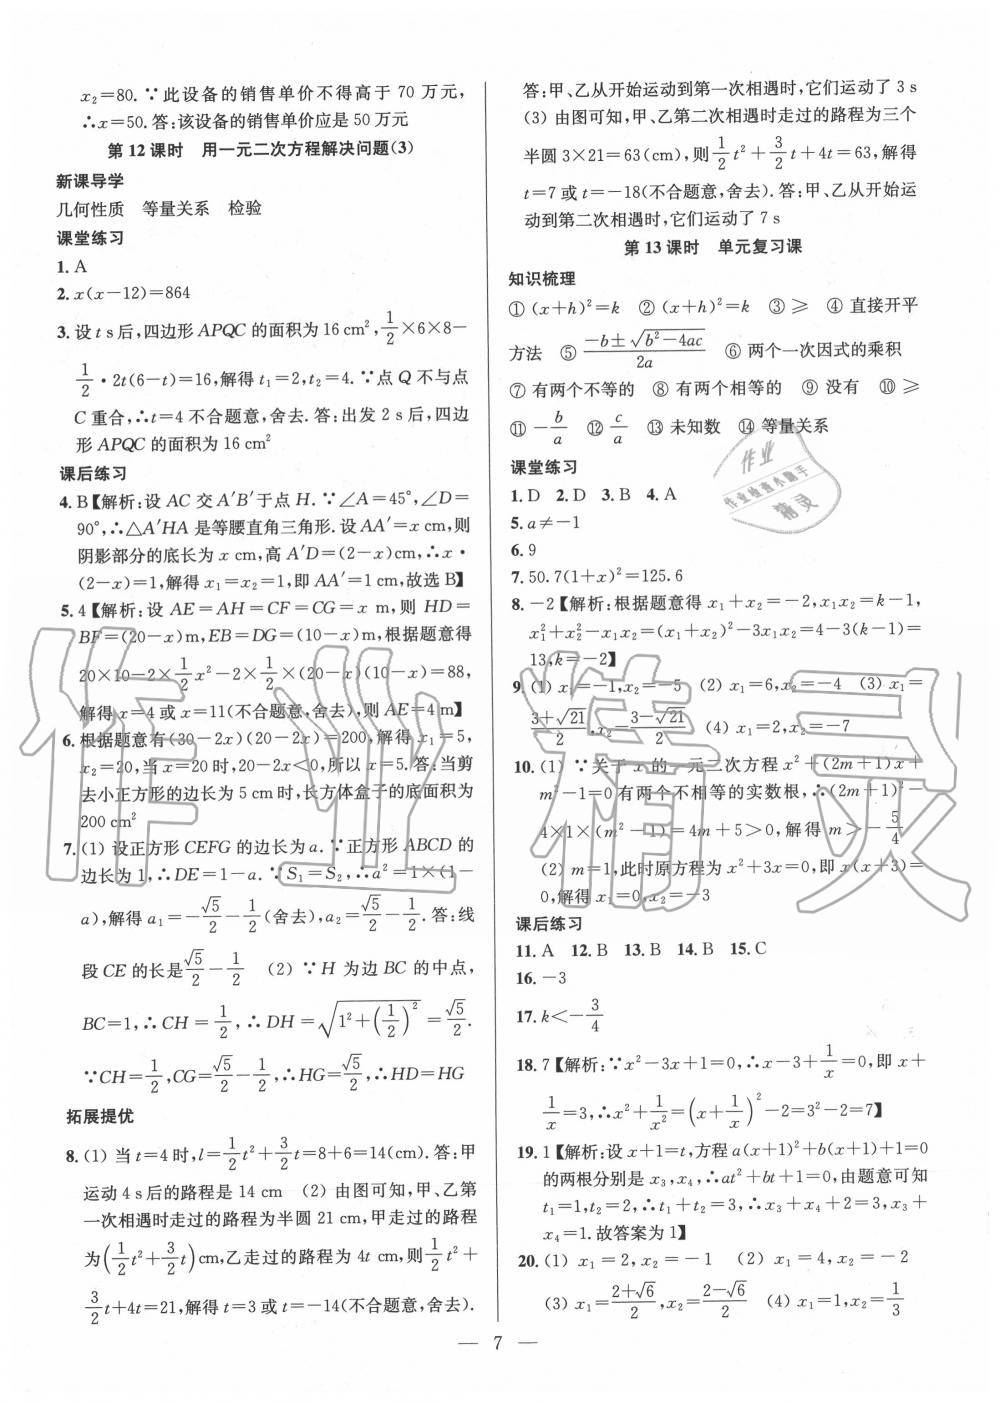 x₂=80.∵此设备的销售单价不得高于 70 万元,
∴x=50.答:该设备的销售单价应是 50 万元
第 12 课时　用一元二次方程解决问题(3)
新课导学
几何性质　等量关系　检验
课堂练习
1. A
2. x(x-12)=864
3. 设 t s 后,四边形 APQC 的面积为 16 cm²,1/2×6×8-
1/2·2t(6-t)=16,解得 t₁=2,t₂=4.∵点 Q 不与点
C 重合,∴t=4 不合题意,舍去.答:出发 2 s 后,四边
形 APQC 的面积为 16 cm²
课后练习
4. B【解析:设 AC 交 A′B′于点 H.∵∠A=45°,∠D=
90°,∴△A′HA 是等腰直角三角形.设 AA′=x cm,则
阴影部分的底长为 x cm,高 A′D=(2-x)cm,∴x·
(2-x)=1,解得 x₁=x₂=1,即 AA′=1 cm,故选 B】
5. 4【解析:设 AE=AH=CF=CG=x m,则 HD=
BF=(20-x)m,EB=DG=(10-x)m,根据题意得
20×10-2×1/2x²-2×1/2×(20-x)(10-x)=88,
解得 x=4 或 x=11(不合题意,舍去),则 AE=4 m】
6. 根据题意有(30-2x)(20-2x)=200,解得 x₁=5,
x₂=20,当 x=20 时,20-2x<0,所以 x=5.答:当剪
去小正方形的边长为 5 cm 时,长方体盒子的底面积为
200 cm²
7. (1) 设正方形 CEFG 的边长为 a.∵正方形 ABCD 的
边长为 1,∴DE=1-a.∵S₁=S₂,∴a²=1×(1-
a),解得 a₁=-√5/2-1/2(舍去),a₂=√5/2-1/2.答:线
段 CE 的长是√5/2-1/2　(2) ∵H 为边 BC 的中点,
BC=1,∴CH=1/2,∴DH=√(1²+(1/2)²)=√5/2.
∵CH=1/2,CG=√5/2-1/2,∴HG=√5/2,∴HD=HG
拓展提优
8. (1) 当 t=4 时,l=1/2t²+3/2t=8+6=14(cm).答:甲
运动 4 s 后的路程是 14 cm　(2) 由图可知,甲、乙第
一次相遇时走过的路程为半圆 21 cm,甲走过的路程
为(1/2t²+3/2t)cm,乙走过的路程为 4t cm,则1/2t²+
3/2t+4t=21,解得 t=3 或 t=-14(不合题意,舍去).
答:甲、乙从开始运动到第一次相遇时,它们运动了 3 s
(3) 由图可知,甲、乙第二次相遇时走过的路程为三个
半圆 3×21=63(cm),则1/2t²+3/2t+4t=63,解得
t=7 或 t=-18(不合题意,舍去).答:甲、乙从开始运
动到第二次相遇时,它们运动了 7 s
第 13 课时　单元复习课
知识梳理
① (x+h)²=k　② (x+h)²=k　③ ≥　④ 直接开平
方法　⑤ (-b±√(b²-4ac))/2a　⑥ 两个一次因式的乘积
⑦ 有两个不等的　⑧ 有两个相等的　⑨ 没有　⑩ ≥
⑪ -b/a　⑫ c/a　⑬ 未知数　⑭ 等量关系
课堂练习
1. D　2. D　3. B　4. A
5. a≠-1
6. 9
7. 50.7(1+x)²=125.6
8. -2【解析:根据题意得 x₁+x₂=-2,x₁x₂=k-1,
x₁²+x₂²-x₁x₂=(x₁+x₂)²-3x₁x₂=4-3(k-1)=
13,k=-2】
9. (1) x₁=-1,x₂=-5　(2) x₁=6,x₂=-4　(3) x₁=
(3+√21)/2,x₂=(3-√21)/2　(4) x₁=2,x₂=-7
10. (1) ∵关于 x 的一元二次方程 x²+(2m+1)x+
m²-1=0 有两个不相等的实数根,∴(2m+1)²-
4×1×(m²-1)=4m+5>0,解得 m>-5/4
(2) m=1,此时原方程为 x²+3x=0,即 x(x+3)=
0,解得 x₁=0,x₂=-3
课后练习
11. A　12. B　13. B　14. B　15. C
16. -3
17. k<-3/4
18. 7【解析:∵x²-3x+1=0,∴x-3+1/x=0,即 x+
1/x=3,∴x²+1/x²=(x+1/x)²-2=3²-2=7】
19. 1【解析:设 x+1=t,方程 a(x+1)²+b(x+1)+1=0
的两根分别是 x₃,x₄,∴at²+bt+1=0,由题意可知
t₁=1,t₂=2,∴t₁+t₂=3,∴x₃+x₄+2=3,x₃+
x₄=1.故答案为 1】
20. (1) x₁=2,x₂=-1　(2) x₁=4,x₂=-2
(3) x₁=(2+√6)/2,x₂=(2-√6)/2　(4) x₁=1,x₂=1/3
— 7 —
作业精灵
作业
作业检查小助手
精灵